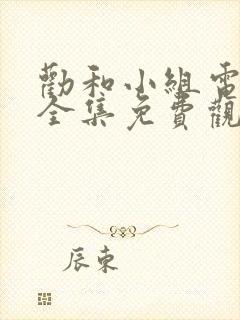 勸和小組電
全集免費觀
辰東